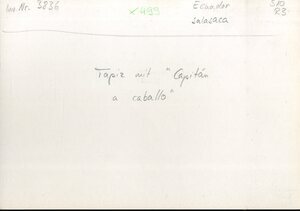 Inv. Nr. 3836
x 499
Ecuador
salasaca
S10
R3
Tapiz mit "Capitán
a caballo"